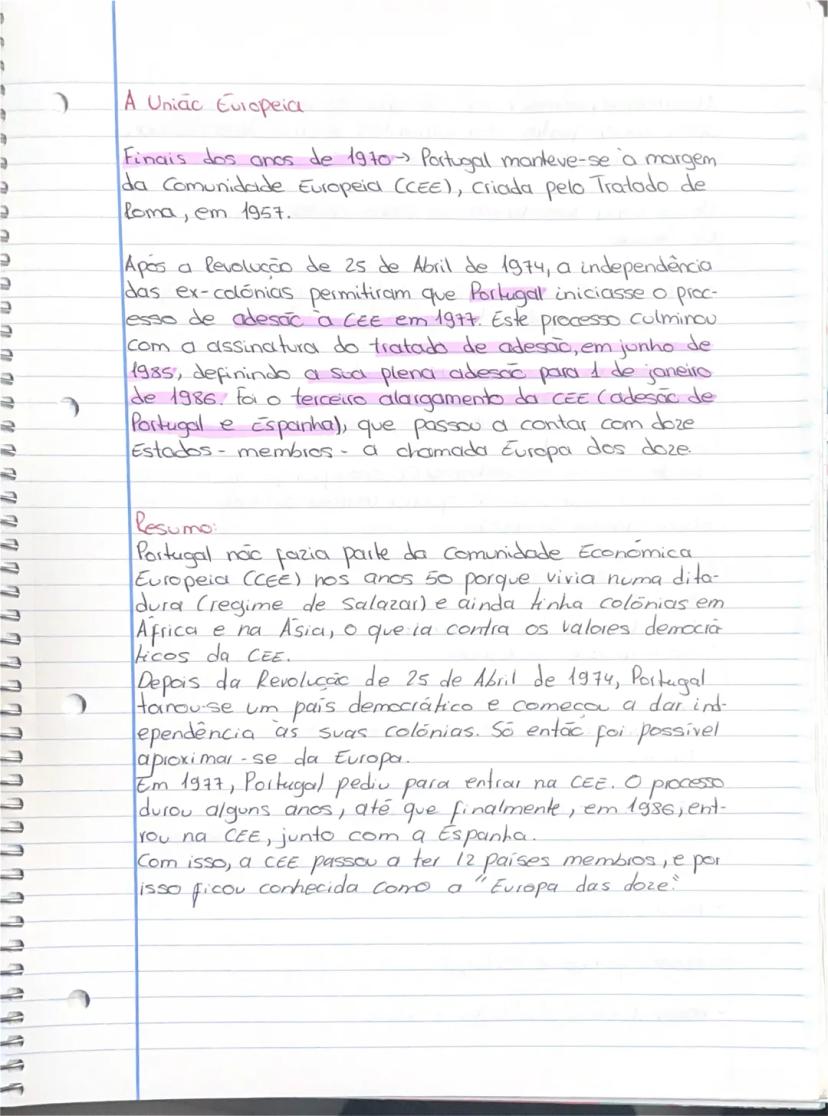 A União Europeia
Finais dos anos de 1970 → Portugal manteve-se à margem
da Comunidade Europeia (CEE), criada pelo Tratado de
Roma, em 1957.
Após a Revolução de 25 de Abril de 1974, a independência
das ex-colónias permitiram que Portugal iniciasse o proc-
esso de adesão à CEE em 1977. Este processo culminou
com a assinatura do tratado de adesão, em junho de
1985, definindo a sua plena adesão para 1 de janeiro
de 1986. Foi o terceiro alargamento da CEE (adesão de
Portugal e Espanha), que passou a contar com doze
Estados-membros - a chamada Europa dos doze.
Resumo:
Portugal não fazia parte da Comunidade Económica
Europeia (CEE) nos anos 50 porque vivia numa dita-
dura (regime de Salazar) e ainda tinha colónias em
África e na Ásia, o que ia contra os valores democrá
ticos da CEE.
Depois da Revolução de 25 de Abril de 1974, Portugal
tornou-se um país democrático e começou a dar ind-
ependência às suas colónias. Só então foi possível
aproximar-se da Europa.
Em 1977, Portugal pediu para entrar na CEE. O processo
durou alguns anos, até que finalmente, em 1986, ent-
rou na CEE, junto com a Espanha.
Com isso, a CEE passou a ter 12 países membros, e por
isso ficou conhecida como a "Europa das doze."